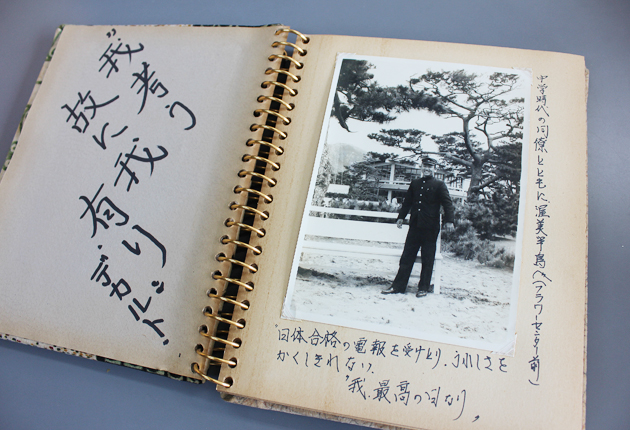 “我考う
故に、我
有り”
デカルト.
中学時代の同僚とともに渥美半島へ(フラワーセンター前)
“日体合格の電報を受けとり、うれしさを
かくしきれない.
“我、最高の日なり”